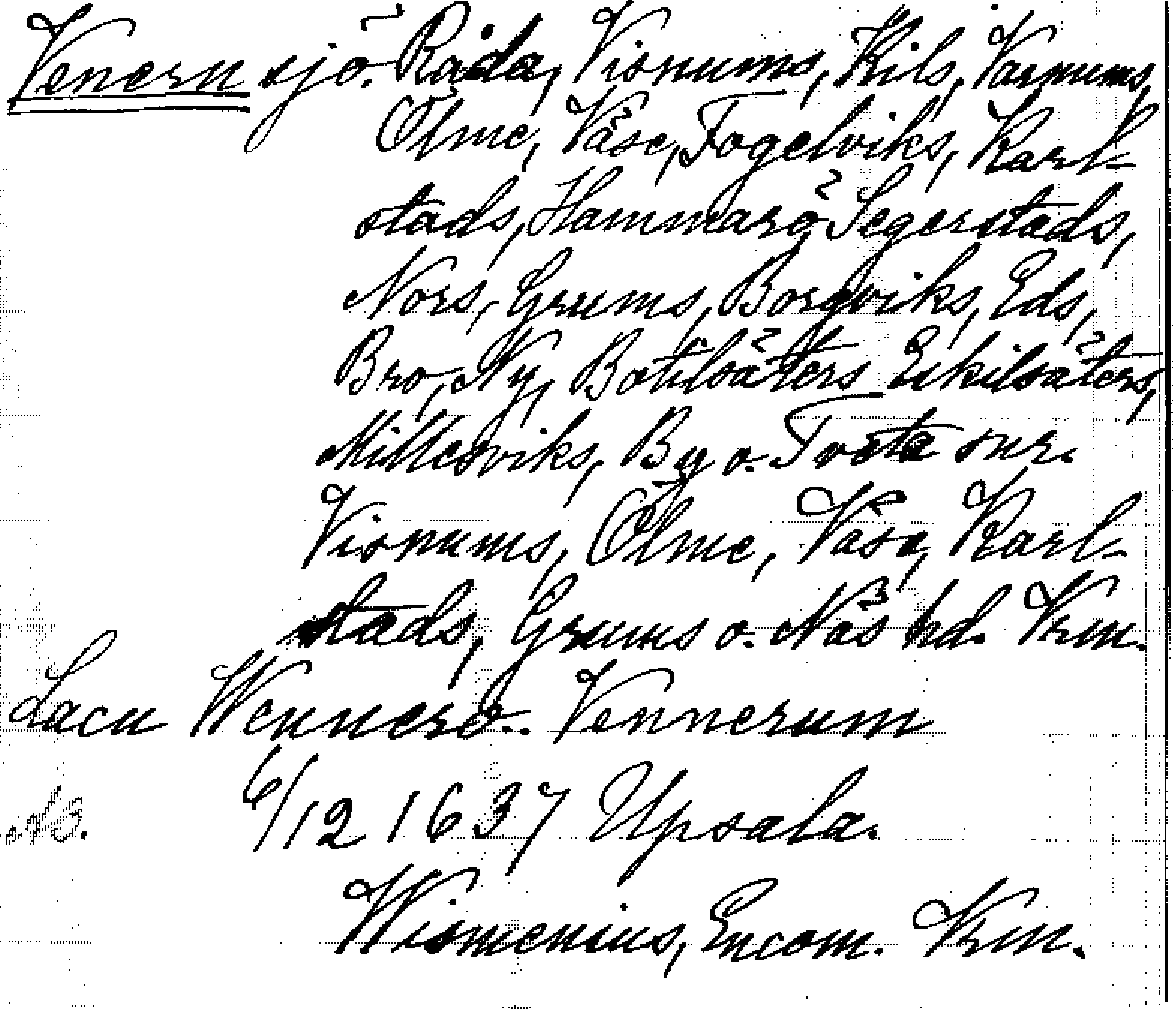 Venern sjö. Råda, Visnums, Kils, Varnums,
Ölme, Väse, Fogelviks, Karl-
stads, Hammarö, Segerstads,
Nors, Grums, Borgviks, Eds,
Bro, Ny, Botilsäters Eskilsäters,
Millesviks, By o. Tveta snr.
Visnums, Ölme, Väse, Karl-
stads, Grums o. Näs hd. Vrm.
Lacu Wennero. Vennerum
6/12 1637 Upsala.
Wismenius, Encom. Vrm.